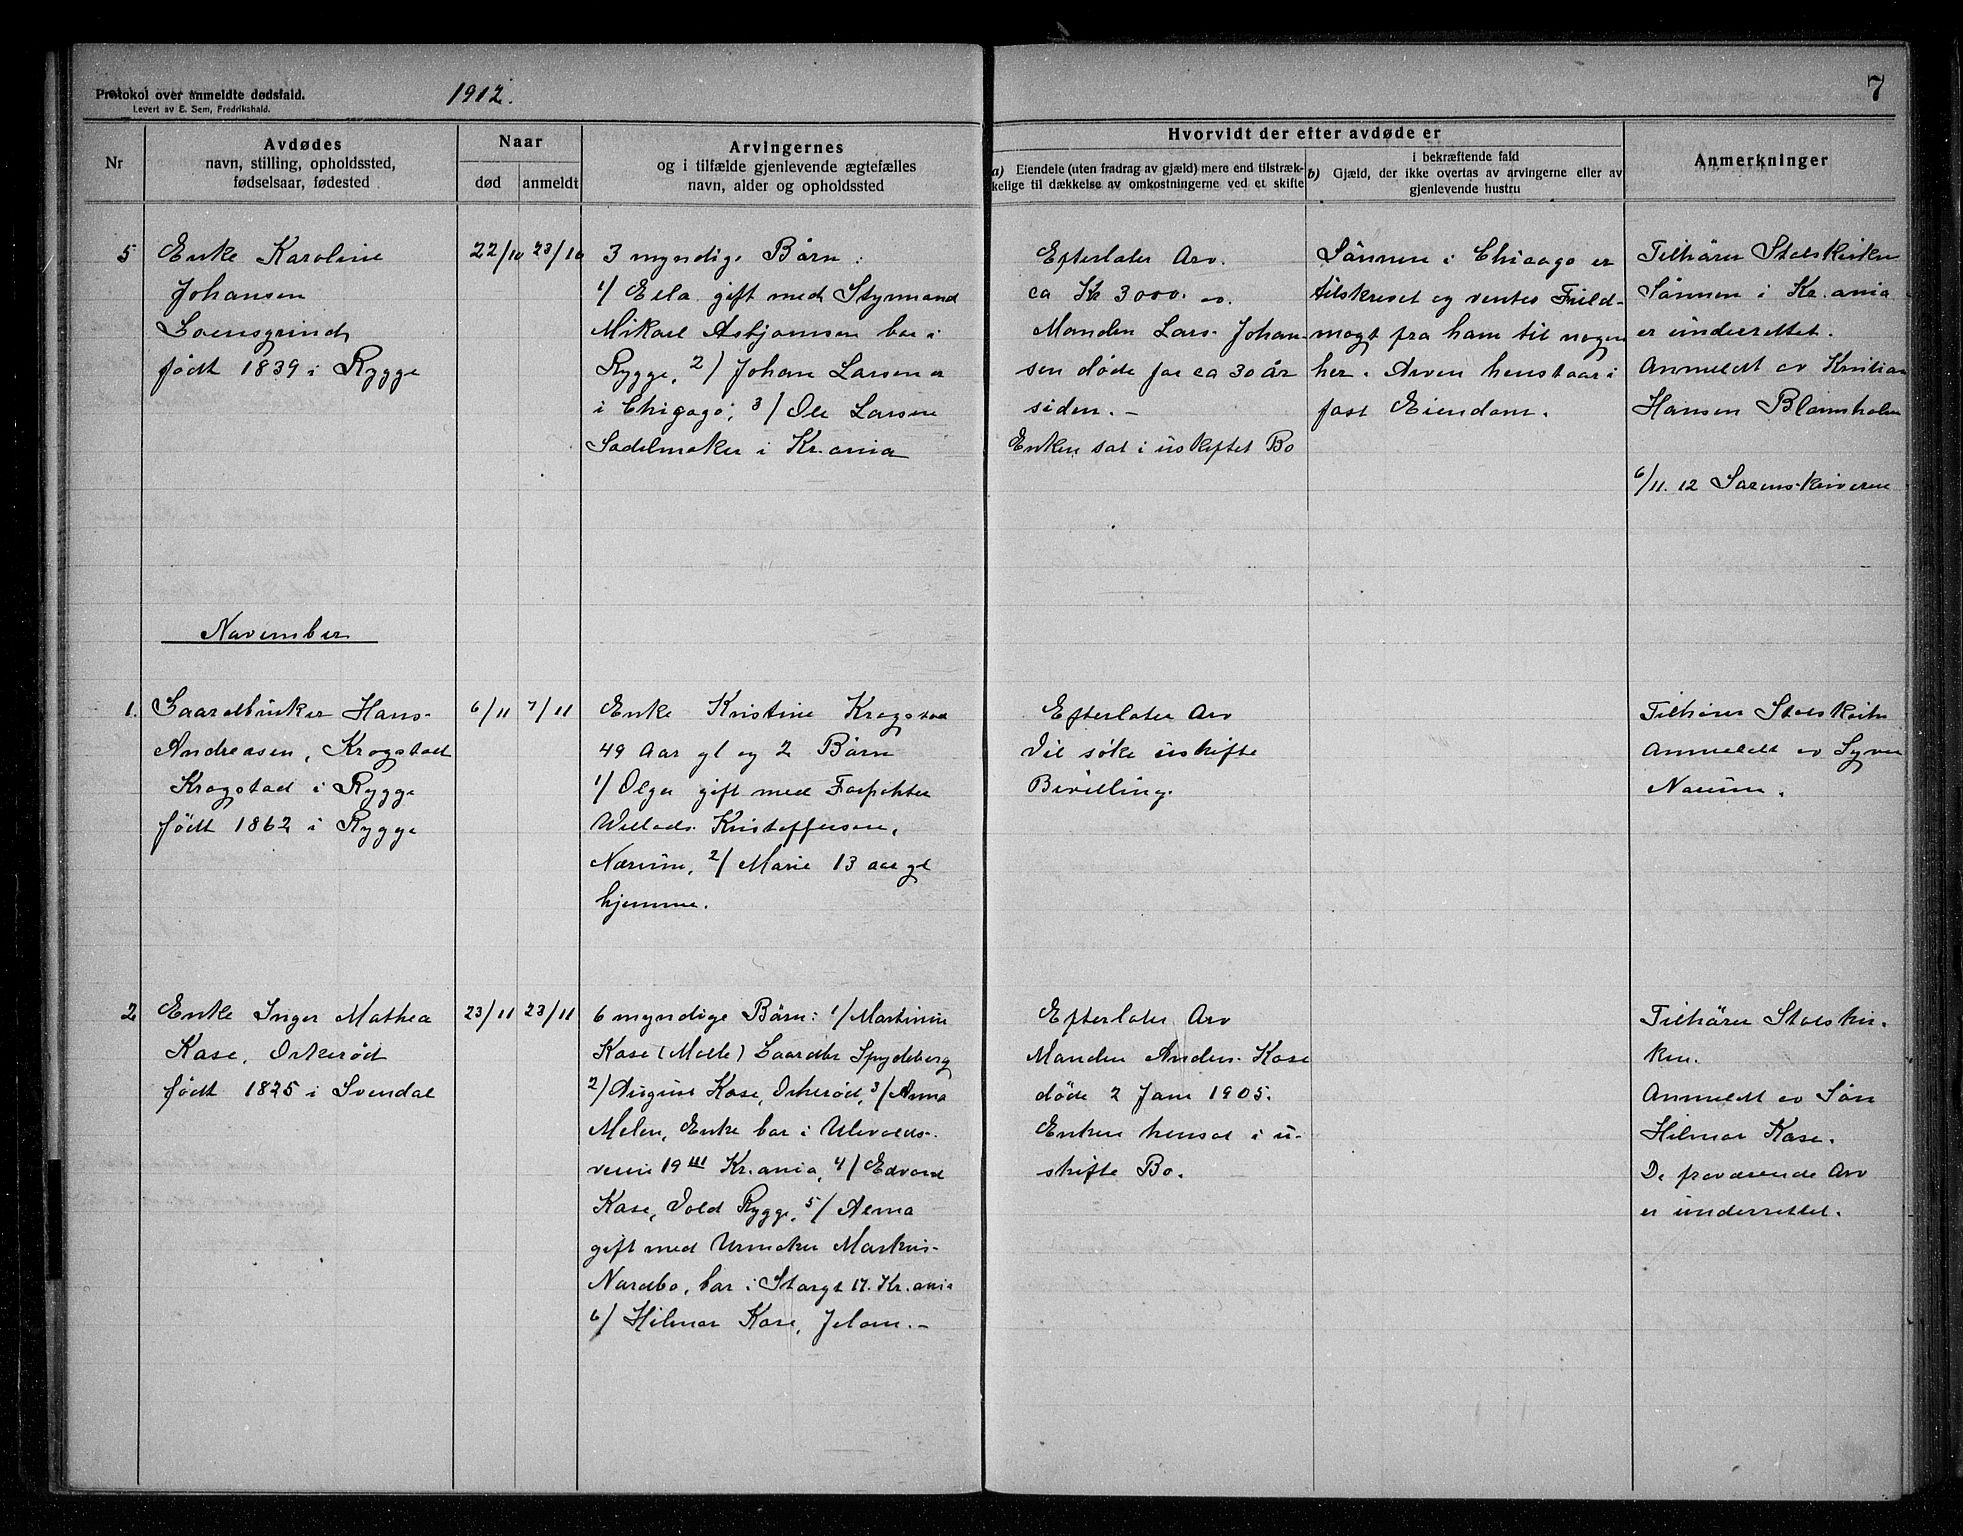 Protokol over anmeldte dødsfald.
Levert av E. Sem, Fredrikshald.
1912.
7
Nr
Avdødes
navn, stilling, opholdssted,
fødselsaar, fødested
Naar
død
anmeldt
Arvingernes
og i tilfælde gjenlevende ægtefælles
navn, alder og opholdssted
Hvorvidt der efter avdøde er
a) Eiendele (uten fradrag av gjæld) mere end tilstræk-
kelige til dækkelse av omkostningerne ved et skifte
i bekræftende fald
b) Gjæld, der ikke overtas av arvingerne eller av
gjenlevende hustru
Anmerkninger
5
Enke Karoline
Johansen
født 1839 i Rygge
22/10
23/10
3 myndige Børn:
1/ Ella gift med Styrmand
Mikael Asbjørnsen bor i
Rygge, 2/ Johan Larsen er
i Chigago, 3/ Ole Larsen
Sadelmaker i Kr.ania
Efterlater Arv.
ca Kr 3000.
Manden Lars Johan-
sen døde for ca 30 år
siden. -
Enken sat i uskiftet Bo
Sønnen i Chicago er
tilskrevet og ventes Fuld-
magt fra ham til nogen
her. Arven henstaar i
fast Eiendom.
Tilhører Statskirken
Sønnen i Kr.ania
er underrettet.
Anmeldt av Kristian
Hansen Blomholm
6/11. 12 Sorenskriveren
November
1.
Gaardbruker Hans
Andreasen, Krogstad
Krogstad i Rygge
født 1862 i Rygge
6/11
7/11
Enke Kristine Krogstad
49 Aar gl og 2 Børn
1/ Olga gift med Forpakter
Kristoffersen,
Nærum, 2/ Marie 13 aar gl
hjemme.
Efterlater Arv
Vil søke uskifte
Bevilling.
Tilhører Statskirke
Anmeldt av Syver
Nærum.
2
Enke Inger Mathea
Kase, Orkerød
født 1825 i Svendal
23/11
23/11
6 myndige Børn: 1/ Martinius
Kase (Molle) Gaardbr Spydeberg
2/ August Kase, Orkerød, 3/ Anna
Melen, Enke bor i Ulevolds-
veien 19 III Kr.ania, 4/ Edvard
Kase, Vold Rygge, 5/ Alma
gift med Urmaker Markus
Nordbo, bor i Storgt 17. Kr.ania
6/ Hilmar Kase, Jeløen. -
Efterlater Arv
Manden Anders Kase
døde 2 Jan 1905.
Enken hensat i u-
skifte Bo.
Tilhører Statskir-
ken.
Anmeldt av Søn
Hilmar Kase.
De fraværende Arv
er underrettet.